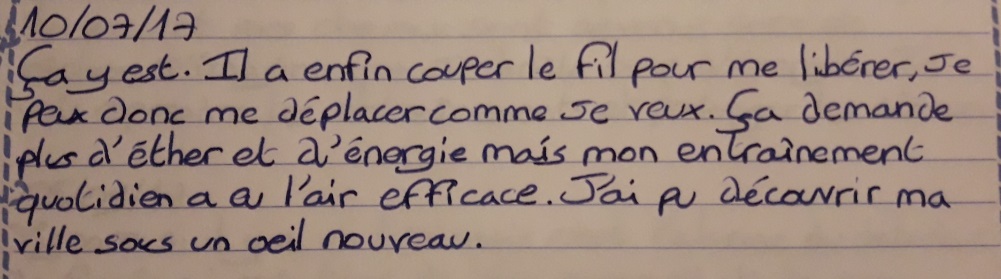 10/07/17
Ça y est. Il a enfin couper le fil pour me libérer, Je
peux donc me déplacer comme Je veux. Ça demande
plus d'éther et d'énergie mais mon entraînement
quotidien a eu l'air efficace. J'ai pu découvrir ma
ville sous un oeil nouveau.